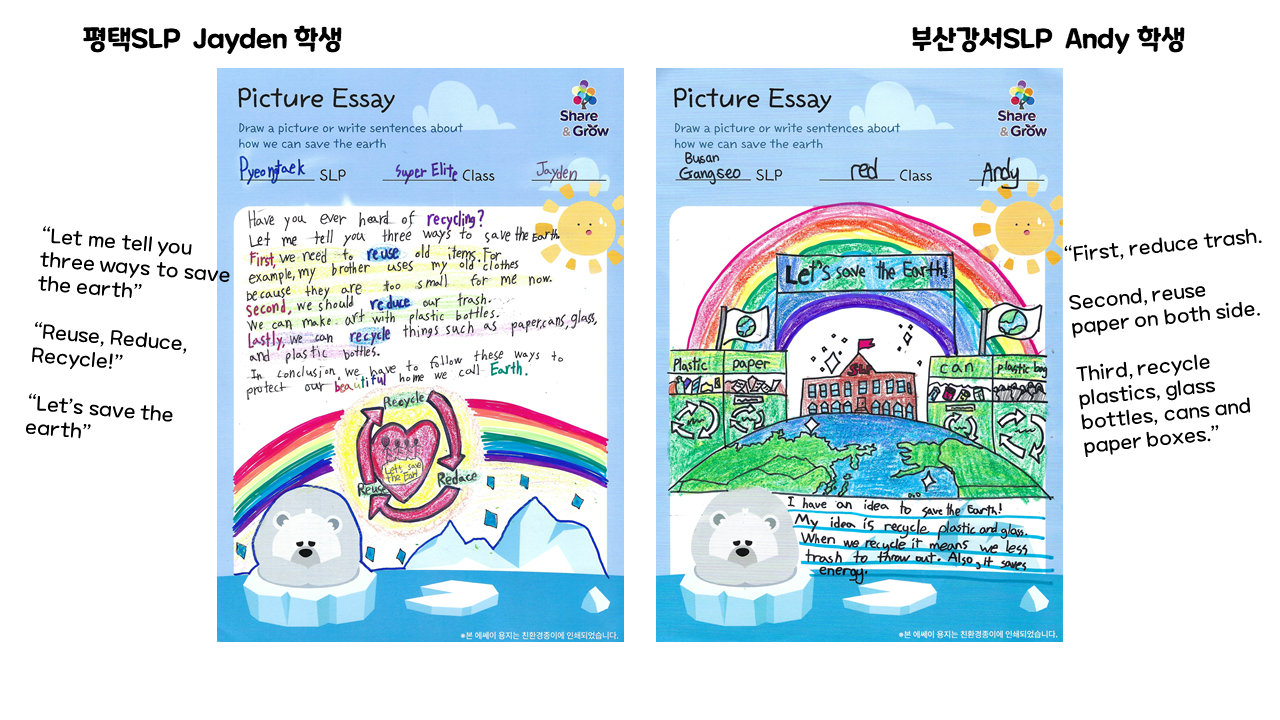 평택SLP Jayden 학생
부산강서SLP Andy 학생
“Let me tell you
three ways to save
the earth”
“Reuse, Reduce,
Recycle!”
“Let’s save the
earth”
Picture Essay
Share
& Grow
Draw a picture or write sentences about
how we can save the earth
Pyeongtaek SLP Super Elite Class Jayden
Have you ever heard of recycling?
Let me tell you three ways to save the Earth.
First, we need to reuse old items. For
example, my brother uses my old clothes
because they are too small for me now.
Second, we should reduce our trash.
We can make art with plastic bottles.
Lastly, we can recycle things such as paper, cans, glass,
and plastic bottles.
In conclusion, we have to follow these ways to
protect our beautiful home we call Earth.
Recycle
Let's save
the Earth
Reuse
Redace
※본 에쎄이 용지는 친환경종이에 인쇄되었습니다.
Picture Essay
Share
& Grow
Draw a picture or write sentences about
how we can save the earth
Busan
Gangseo SLP red Class Andy
Let's save the Earth!
Plastic paper can plastic bag
SLP
I have an idea to save the Earth!
My idea is recycle plastic and glass.
When we recycle it means we less
trash to throw out. Also, it saves
energy.
※본 에쎄이 용지는 친환경종이에 인쇄되었습니다.
“First, reduce trash.
Second, reuse
paper on both side.
Third, recycle
plastics, glass
bottles, cans and
paper boxes.”